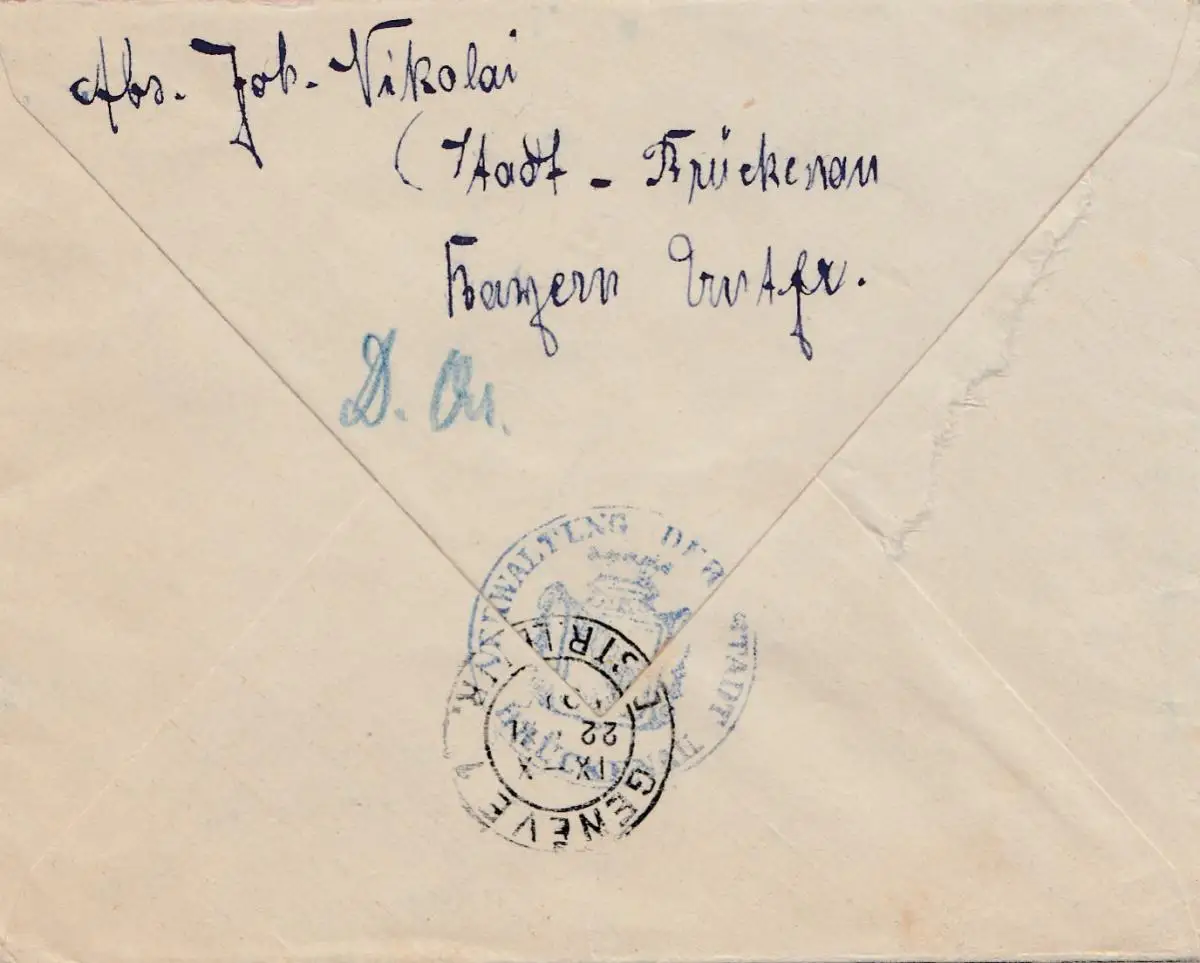 Abs. Joh. Nikolai
(Stadt - Brückenau
Bayern Untfr.
VERWALTUNG DER STADT
GENEVE 1
DISTR
IX-X
22